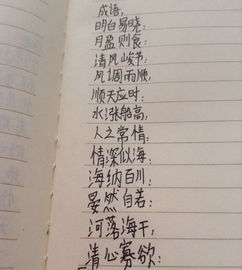 成语:
明白易晓:
月盈则食:
清风峻节:
风调雨顺,
顺天应时:
水涨船高,
人之常情:
情深似海:
海纳百川:
晏然自若:
河落海干,
清心寡欲: